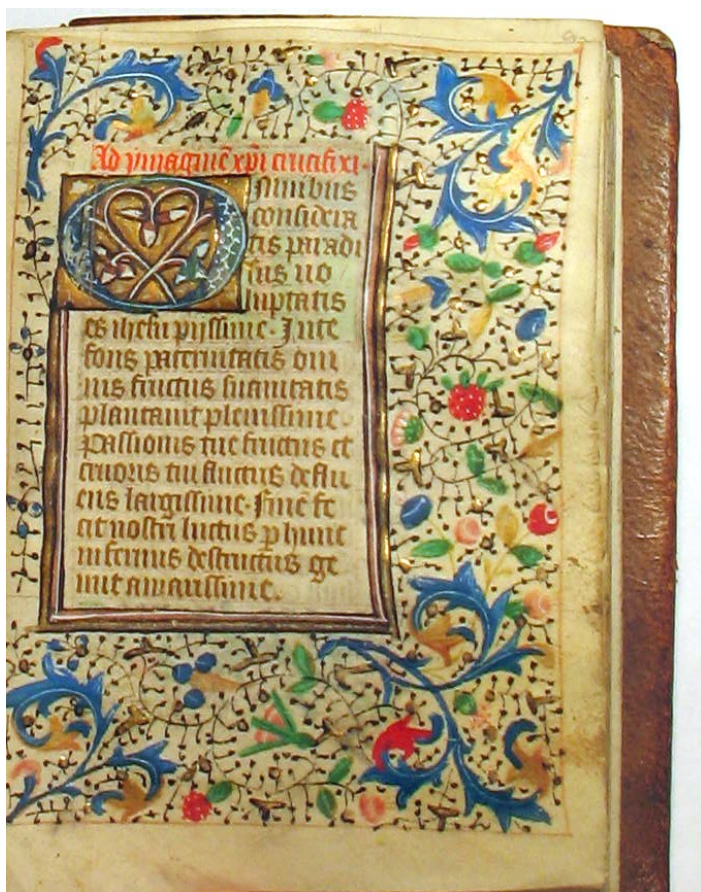 Ad ymaginē xp̄i crucifixi.
Omnibus
considera
tis paradi
sus uo
luptatis
es ihesu pijssime. In te
fons paternitatis om
nis fructus suauitatis
plantauit plenissime.
Passionis tue fructus et
cruoris tui fluctus deflu
ens largissime. finē fe
cit nostri luctus ꝑ hunc
infernus destructus ge
muit amarissime.